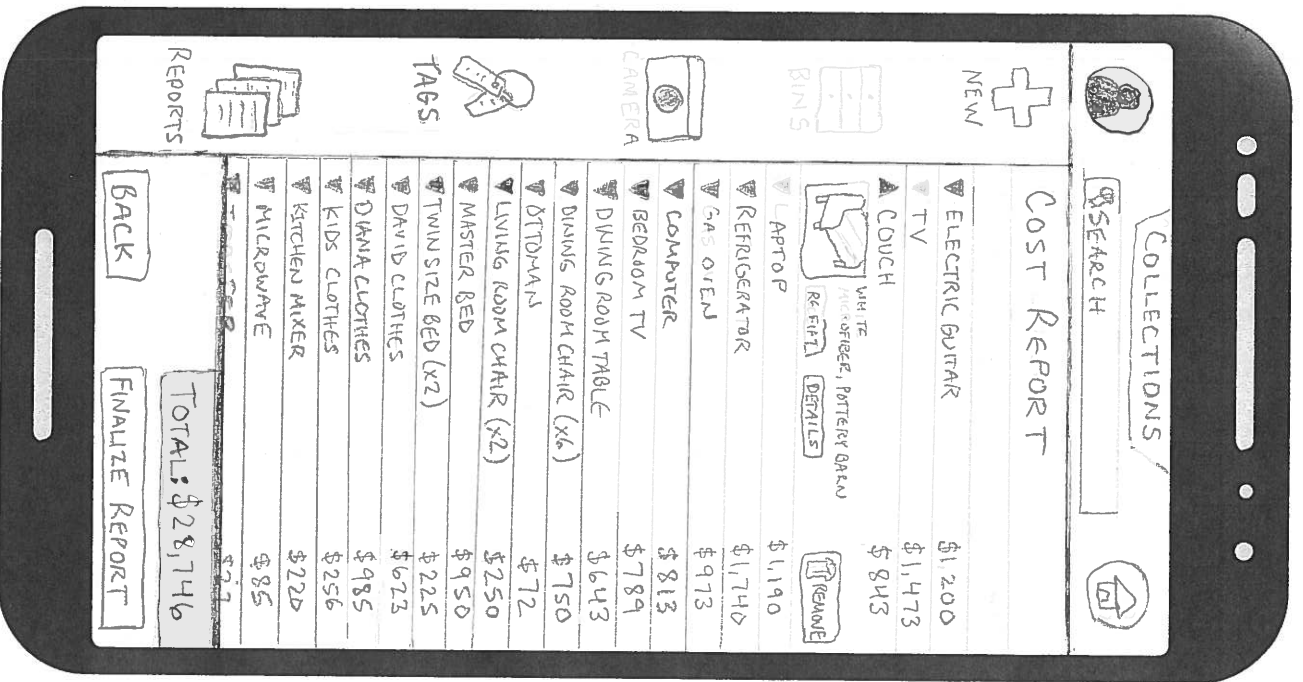 COLLECTIONS
SEARCH
NEW
BINS
CAMERA
TAGS
REPORTS
COST REPORT
ELECTRIC GUITAR $1,200
TV $1,473
COUCH $843
WHITE
MICROFIBER, POTTERY BARN
RECEIPT DETAILS REMOVE
LAPTOP $1,190
REFRIGERATOR $1,740
GAS OVEN $973
COMPUTER $813
BEDROOM TV $789
DINING ROOM TABLE $643
DINING ROOM CHAIR (x6) $750
OTTOMAN $72
LIVING ROOM CHAIR (x2) $250
MASTER BED $950
TWIN SIZE BED (x2) $225
DAVID CLOTHES $623
DIANA CLOTHES $985
KIDS CLOTHES $256
KITCHEN MIXER $220
MICROWAVE $85
TOASTER
TOTAL: $28,746
BACK FINALIZE REPORT